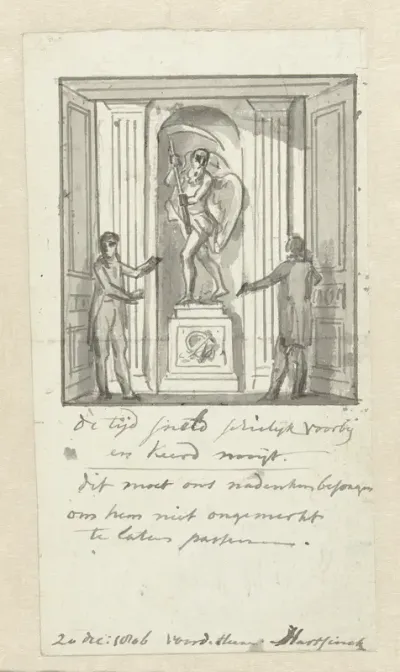 de tijd sneld schielijk voorbij
en keerd nooijt.
dit moet ons nadenken
om hem niet ongemerkt
te laten passeren.
20 dec: 1806 voor d. Heer Hartsinck